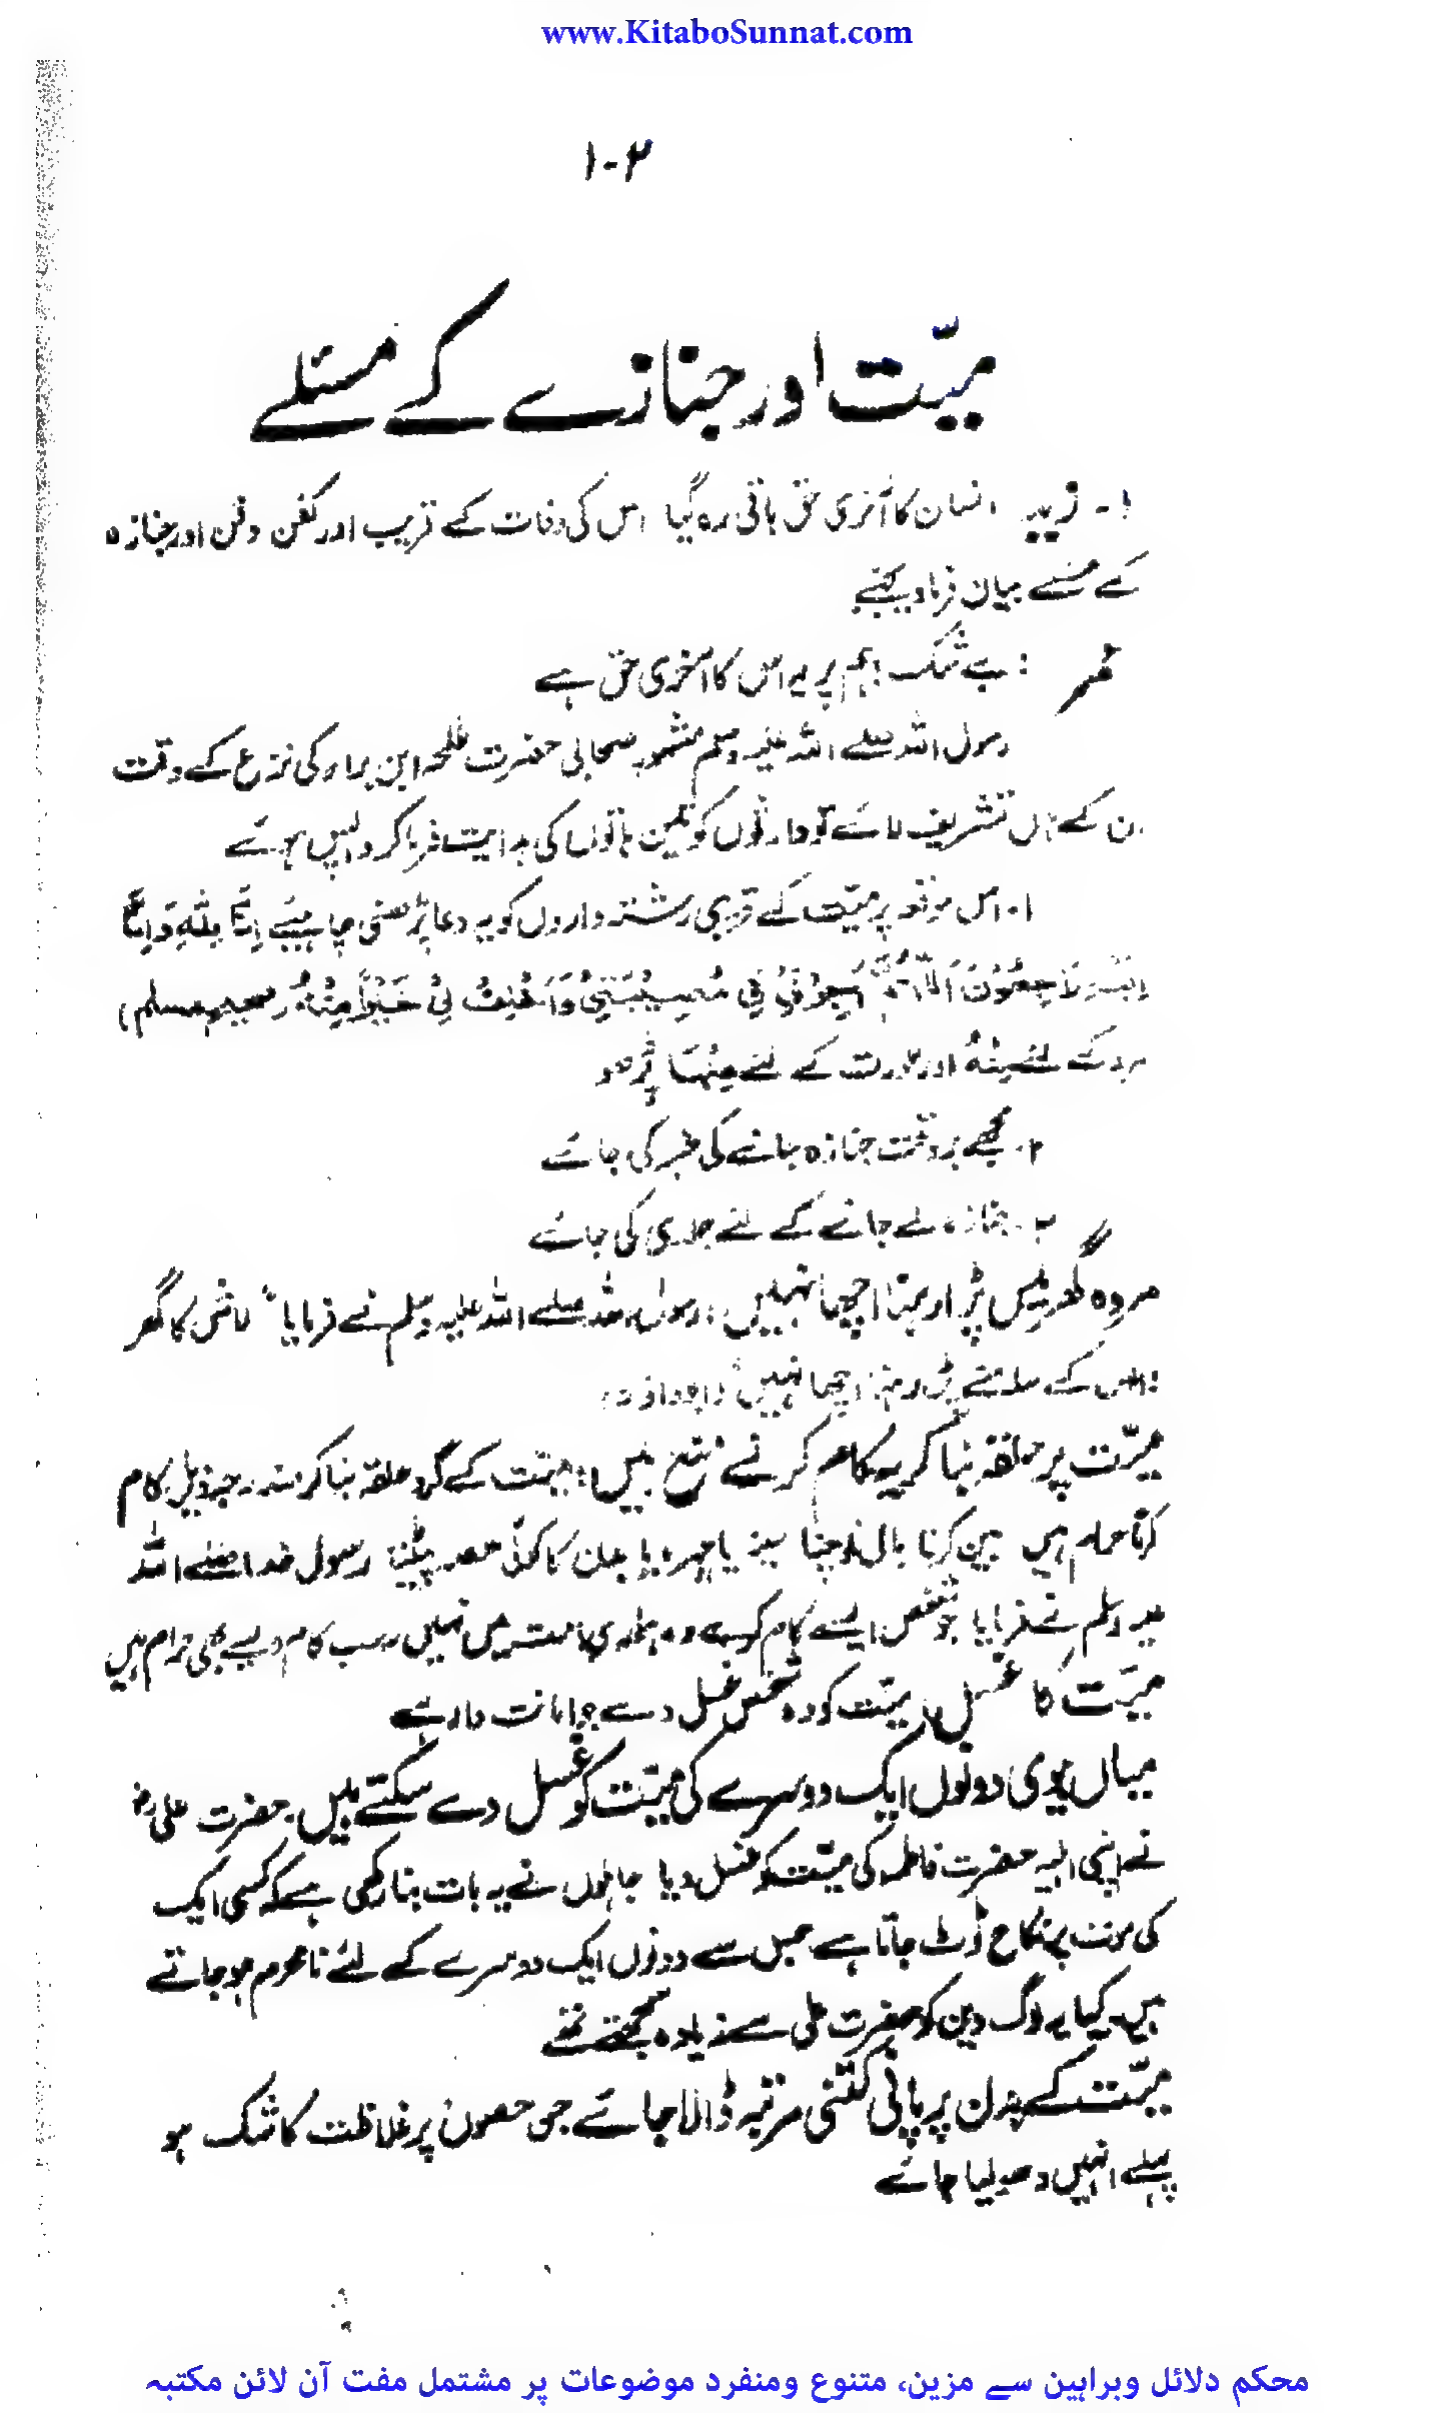 www.KitaboSunnat.com
۱۰۲
میّت اور جنازے کے مسئلے
۱۔ زید انسان کا آخری حق باقی رہ گیا اس کی وفات کے قریب اور کفن دفن اور جنازہ
کے مسئلے بیان فرما دیجئے
عمر : بے شک ہم پر یہ اس کا آخری حق ہے
رسول اللہ صلے اللہ علیہ وسلم مشہور صحابی حضرت طلحہ ابن براء کی نزع کے وقت
ان کے ہاں تشریف لائے تو وارثوں کو تین باتوں کی ہدایت فرما کر واپس ہوئے
۱۔ اس موقعہ پر میّت کے قریبی رشتہ داروں کو یہ دعا پڑھنی چاہیئے اِنَّا لِلّٰہِ وَاِنَّا
اِلَیْہِ رَاجِعُوْنَ اَللّٰھُمَّ اَجِرْنِیْ فِیْ مُصِیْبَتِیْ وَاَخْلِفْ لِیْ خَیْراً مِنْہُ (صحیح مسلم)
مرد کے لئے مِنْہُ اور عورت کے لئے مِنْہَا پڑھو
۲۔ مجھے بروقت جنازہ جانے کی خبر کی جائے
۳۔ جنازہ لے جانے کے لئے جلدی کی جائے
مردہ گھر میں پڑا رہنا اچھا نہیں : رسول اللہ صلے اللہ علیہ وسلم نے فرمایا "لاش کا گھر
والوں کے سامنے پڑے رہنا اچھا نہیں" (ابوداؤد)
میّت پر حلقہ بنا کر یہ کام کرنے منع ہیں : میّت کے گرد حلقہ بنا کر مندرجہ ذیل کام
کرنا حرام ہیں بین کرنا بال نوچنا سینہ یا چہرہ یا بدن کا کوئی حصہ پیٹنا رسول خدا صلے اللہ
علیہ وسلم نے فرمایا جو شخص ایسے کام کرے وہ ہماری امت میں نہیں یہ سب کام ویسے بھی حرام ہیں
میّت کا غسل میّت کو وہ شخص غسل دے جو امانت دار ہے
میاں بیوی دونوں ایک دوسرے کی میّت کو غسل دے سکتے ہیں۔ حضرت علیؓ
نے اپنی اہلیہ حضرت فاطمہ کی میّت کو غسل دیا جاہلوں نے یہ بات بنا رکھی ہے کہ کسی ایک
کی موت پر نکاح ٹوٹ جاتا ہے جس سے دونوں ایک دوسرے کے لئے نامحرم ہو جاتے
ہیں۔ کیا یہ لوگ دین کو حضرت علی سے زیادہ سمجھتے تھے
میّت کے بدن پر پانی کتنی مرتبہ ڈالا جائے جن حصوں پر غلاظت کا شک ہو
پہلے انہیں دھو لیا جائے
محکم دلائل وبراہین سے مزین، متنوع ومنفرد موضوعات پر مشتمل مفت آن لائن مکتبہ